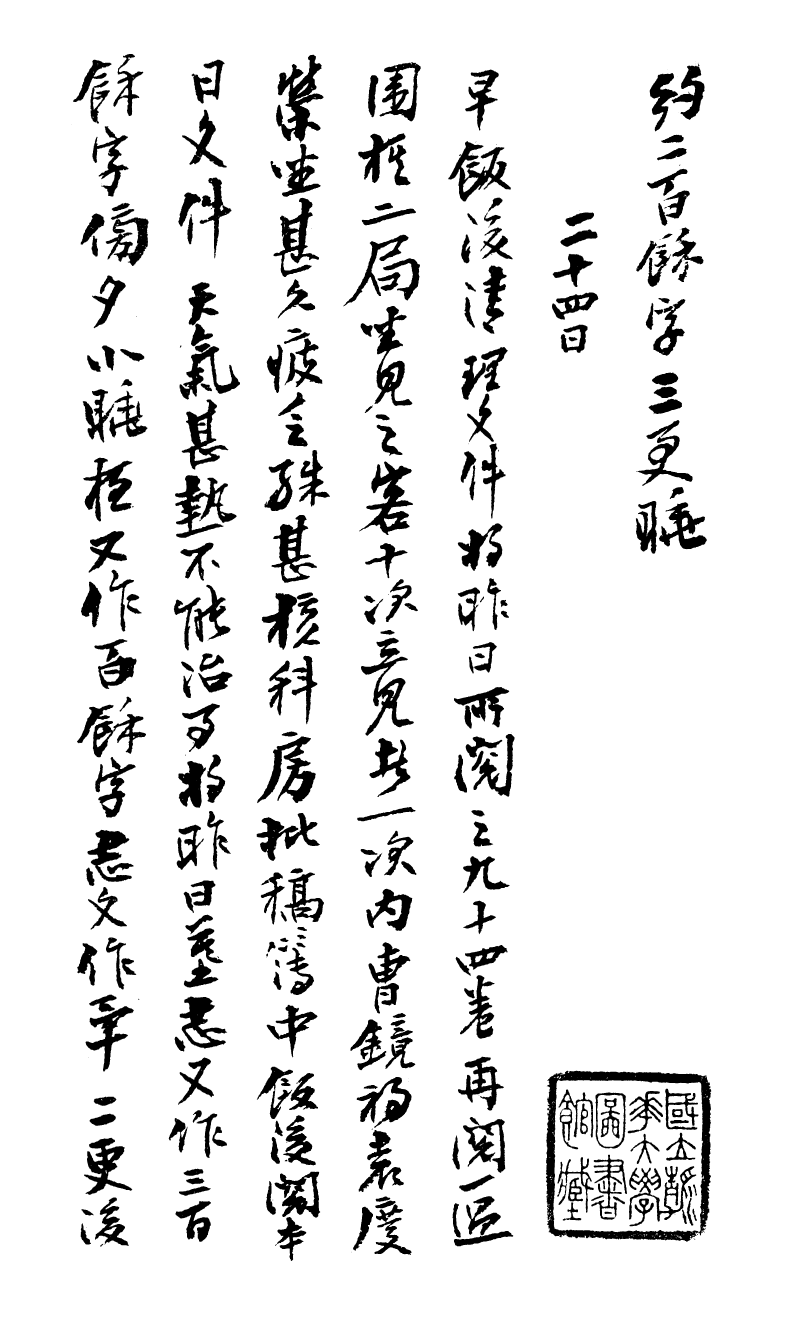 約二百餘字三更睡
二十四日
早飯後清理文件將昨日所閱之九十四卷再閱一過
圍棋二局坐見之客十次立見者一次內曹鏡初袁度
等坐甚久疲乏殊甚核科房批稿簿中飯後閱本
日文件天氣甚熱不能治事將昨日墓志又作三百
餘字傍夕小睡夜又作百餘字志文作畢二更後
國立
華大學
圖書
館藏